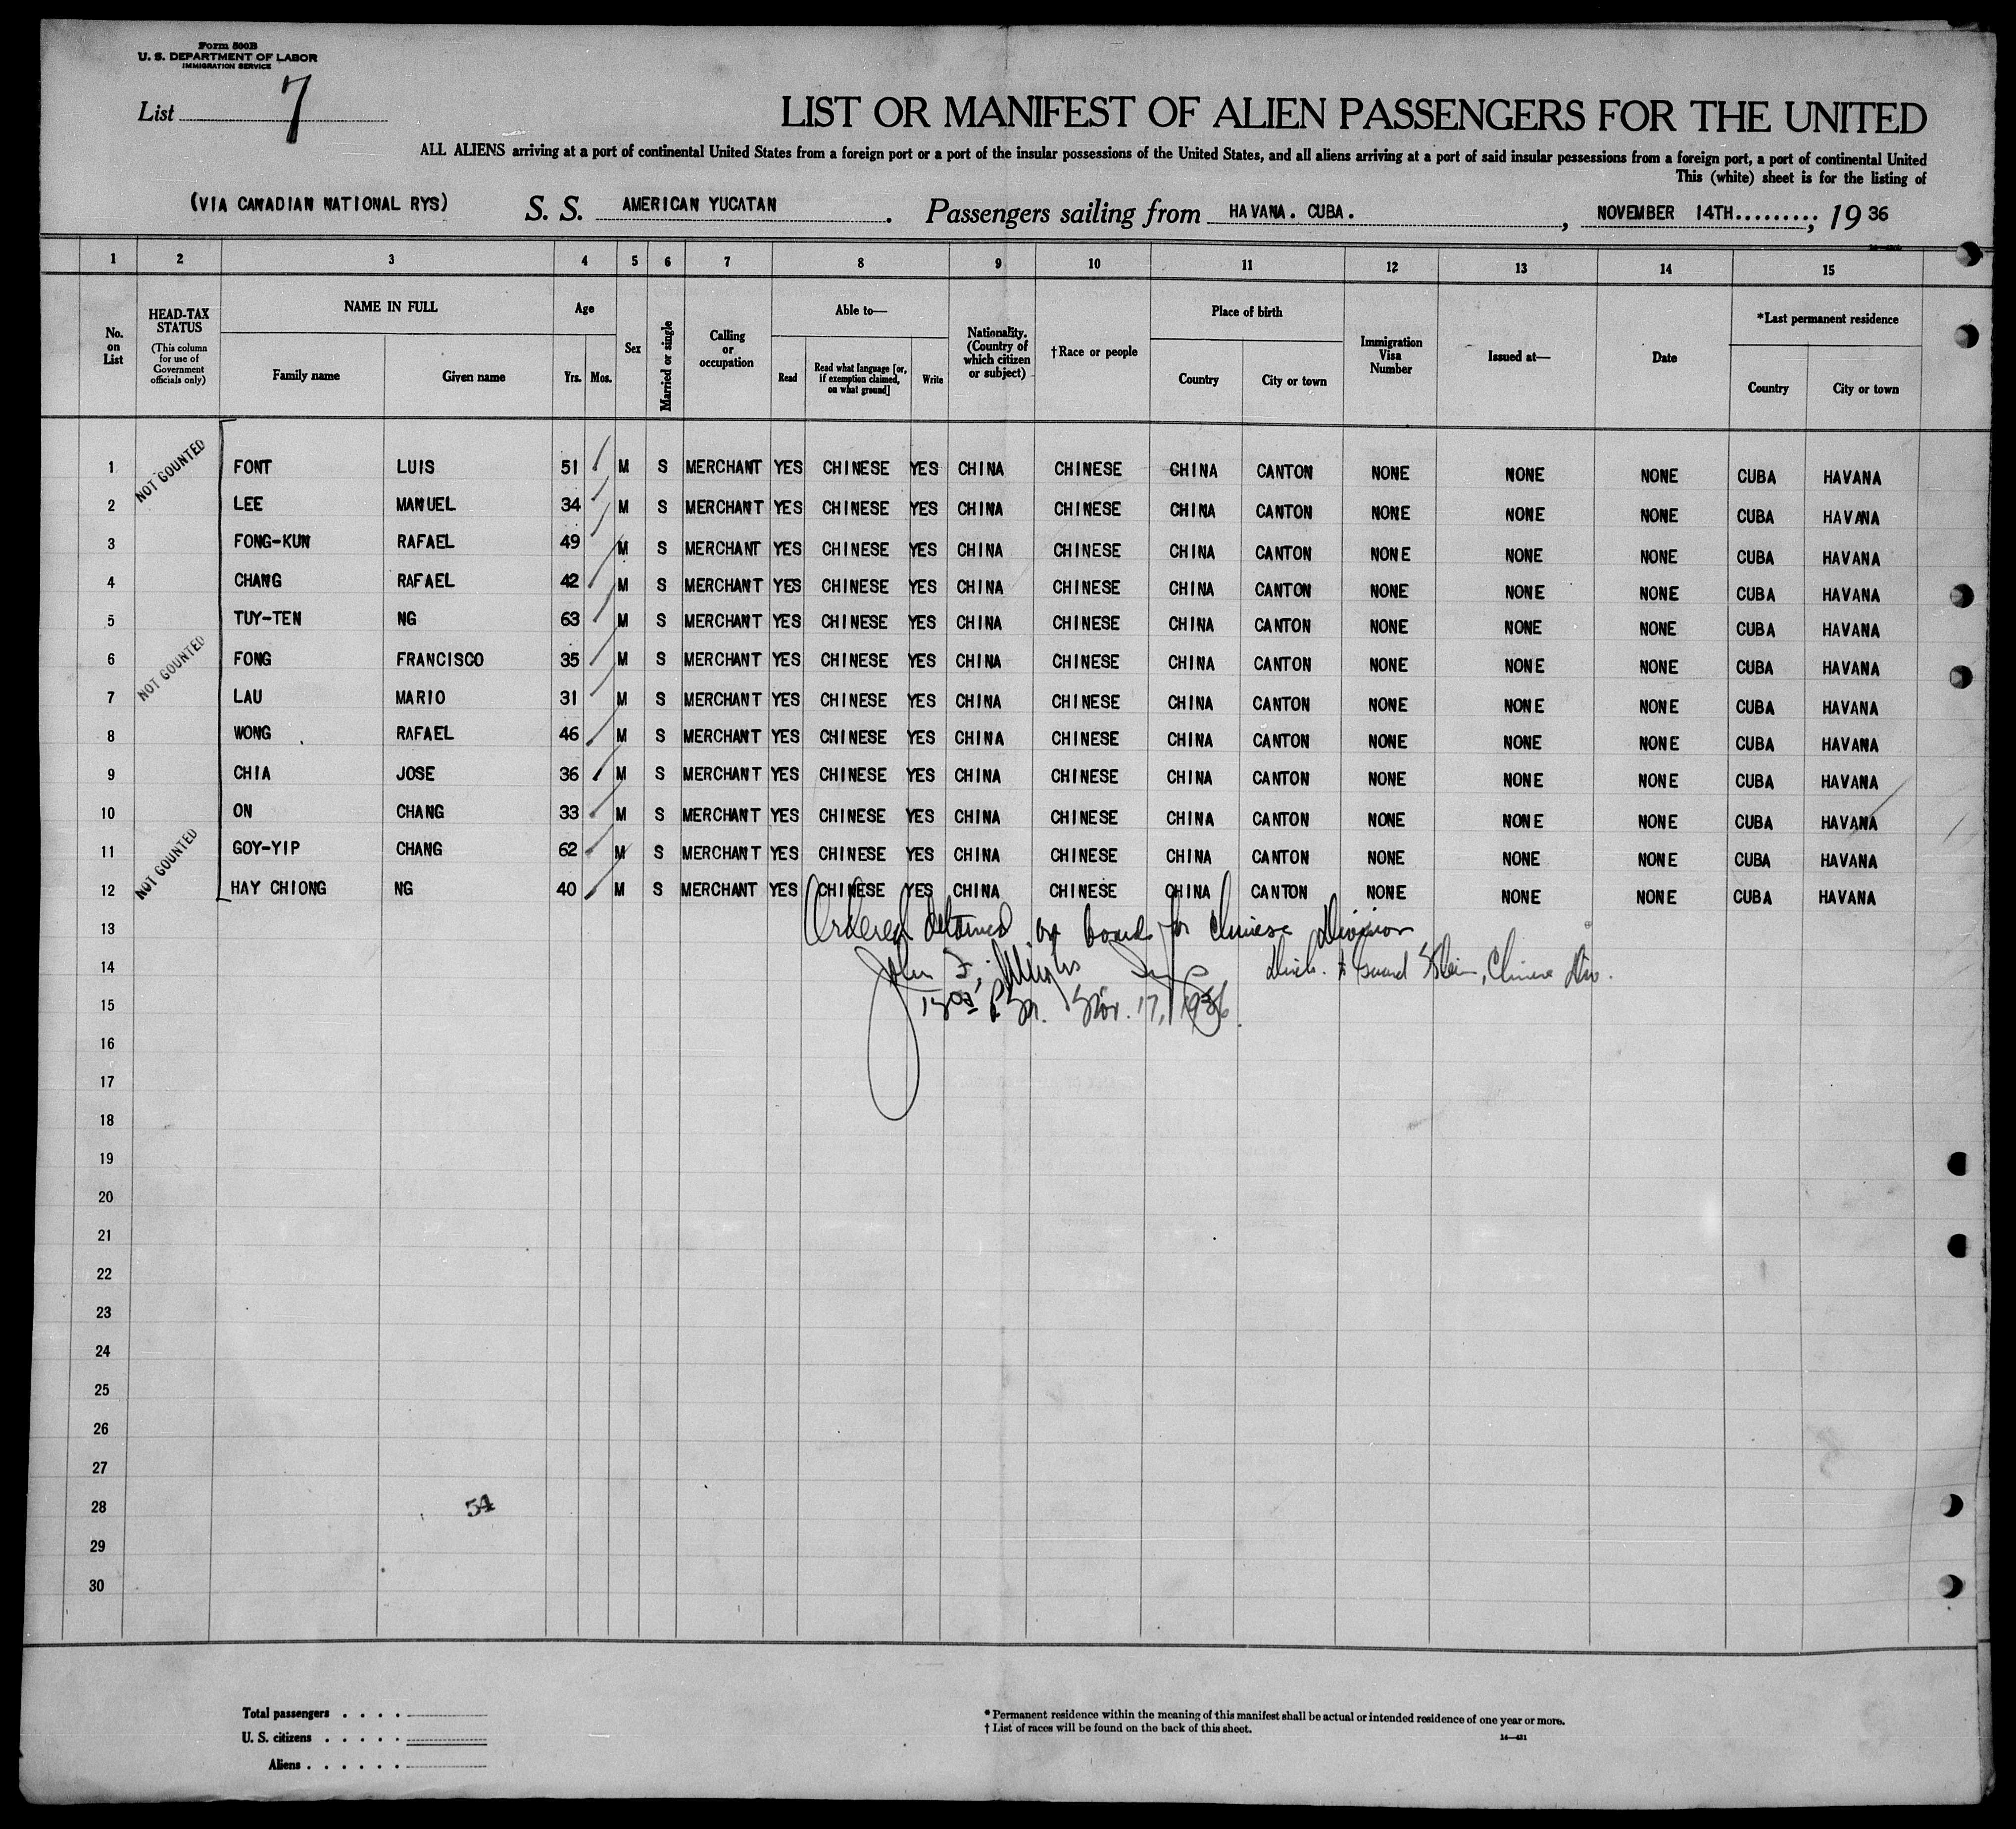 Form 500B
U. S. DEPARTMENT OF LABOR
IMMIGRATION SERVICE
List 7
LIST OR MANIFEST OF ALIEN PASSENGERS FOR THE UNITED
ALL ALIENS arriving at a port of continental United States from a foreign port or a port of the insular possessions of the United States, and all aliens arriving at a port of said insular possessions from a foreign port, a port of continental United
This (white) sheet is for the listing of
(VIA CANADIAN NATIONAL RYS) S. S. AMERICAN YUCATAN. Passengers sailing from HAVANA. CUBA., NOVEMBER 14TH........., 19 36
1 2 3 4 5 6 7 8 9 10 11 12 13 14 15
No. on List
HEAD-TAX STATUS
(This column for use of Government officials only)
NAME IN FULL
Family name Given name
Age
Yrs. Mos.
Sex
Married or single
Calling or occupation
Able to—
Read
Read what language [or, if exemption claimed, on what ground]
Write
Nationality. (Country of which citizen or subject)
†Race or people
Place of birth
Country City or town
Immigration Visa Number
Issued at—
Date
*Last permanent residence
Country City or town
NOT COUNTED
1 FONT LUIS 51 M S MERCHANT YES CHINESE YES CHINA CHINESE CHINA CANTON NONE NONE NONE CUBA HAVANA
2 LEE MANUEL 34 M S MERCHANT YES CHINESE YES CHINA CHINESE CHINA CANTON NONE NONE NONE CUBA HAVANA
3 FONG-KUN RAFAEL 49 M S MERCHANT YES CHINESE YES CHINA CHINESE CHINA CANTON NONE NONE NONE CUBA HAVANA
4 CHANG RAFAEL 42 M S MERCHANT YES CHINESE YES CHINA CHINESE CHINA CANTON NONE NONE NONE CUBA HAVANA
5 TUY-TEN NG 63 M S MERCHANT YES CHINESE YES CHINA CHINESE CHINA CANTON NONE NONE NONE CUBA HAVANA
NOT COUNTED
6 FONG FRANCISCO 35 M S MERCHANT YES CHINESE YES CHINA CHINESE CHINA CANTON NONE NONE NONE CUBA HAVANA
7 LAU MARIO 31 M S MERCHANT YES CHINESE YES CHINA CHINESE CHINA CANTON NONE NONE NONE CUBA HAVANA
8 WONG RAFAEL 46 M S MERCHANT YES CHINESE YES CHINA CHINESE CHINA CANTON NONE NONE NONE CUBA HAVANA
9 CHIA JOSE 36 M S MERCHANT YES CHINESE YES CHINA CHINESE CHINA CANTON NONE NONE NONE CUBA HAVANA
10 ON CHANG 33 M S MERCHANT YES CHINESE YES CHINA CHINESE CHINA CANTON NONE NONE NONE CUBA HAVANA
NOT COUNTED
11 GOY-YIP CHANG 62 M S MERCHANT YES CHINESE YES CHINA CHINESE CHINA CANTON NONE NONE NONE CUBA HAVANA
12 HAY CHIONG NG 40 M S MERCHANT YES CHINESE YES CHINA CHINESE CHINA CANTON NONE NONE NONE CUBA HAVANA
13 Ordered detained on board for Chinese Division
14 John F. Insp Disch. to Guard Chinese Div.
15 Nov. 17, 1936
16
17
18
19
20
21
22
23
24
25
26
27
28 54
29
30
Total passengers . . . .
U. S. citizens . . . . .
Aliens . . . . . .
* Permanent residence within the meaning of this manifest shall be actual or intended residence of one year or more.
† List of races will be found on the back of this sheet.
14—421